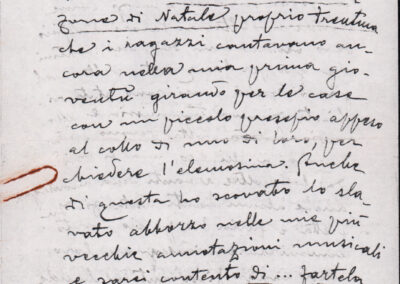 zone di Natale proprio trentina
che i ragazzi cantavano an-
cora nella mia prima gio-
ventù girando per le case
con un piccolo presepio appeso
al collo di uno di loro, per
chiedere l'elemosina. Anche
di questa ho scovato lo sla-
vato abbozzo nelle mie più
vecchie annotazioni musicali
e sarei contento di ... fartela